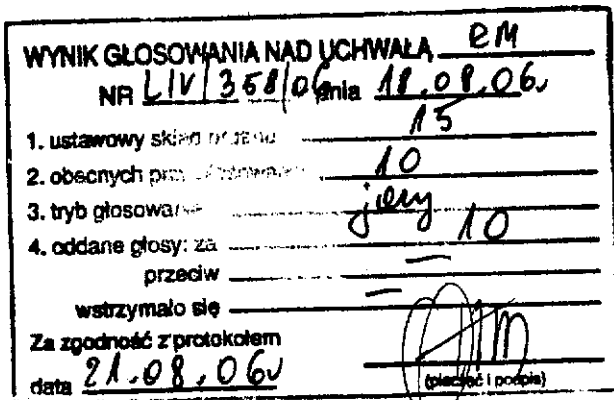 WYNIK GŁOSOWANIA NAD UCHWAŁĄ RM
NR LIV/358/06 dnia 18.08.06r
1. ustawowy skład 15
2. obecnych 10
3. tryb głosowania jawny
4. oddane głosy: za 10
przeciw —
wstrzymało się —
Za zgodność z protokołem
data 21.08.06r (pieczęć i podpis)